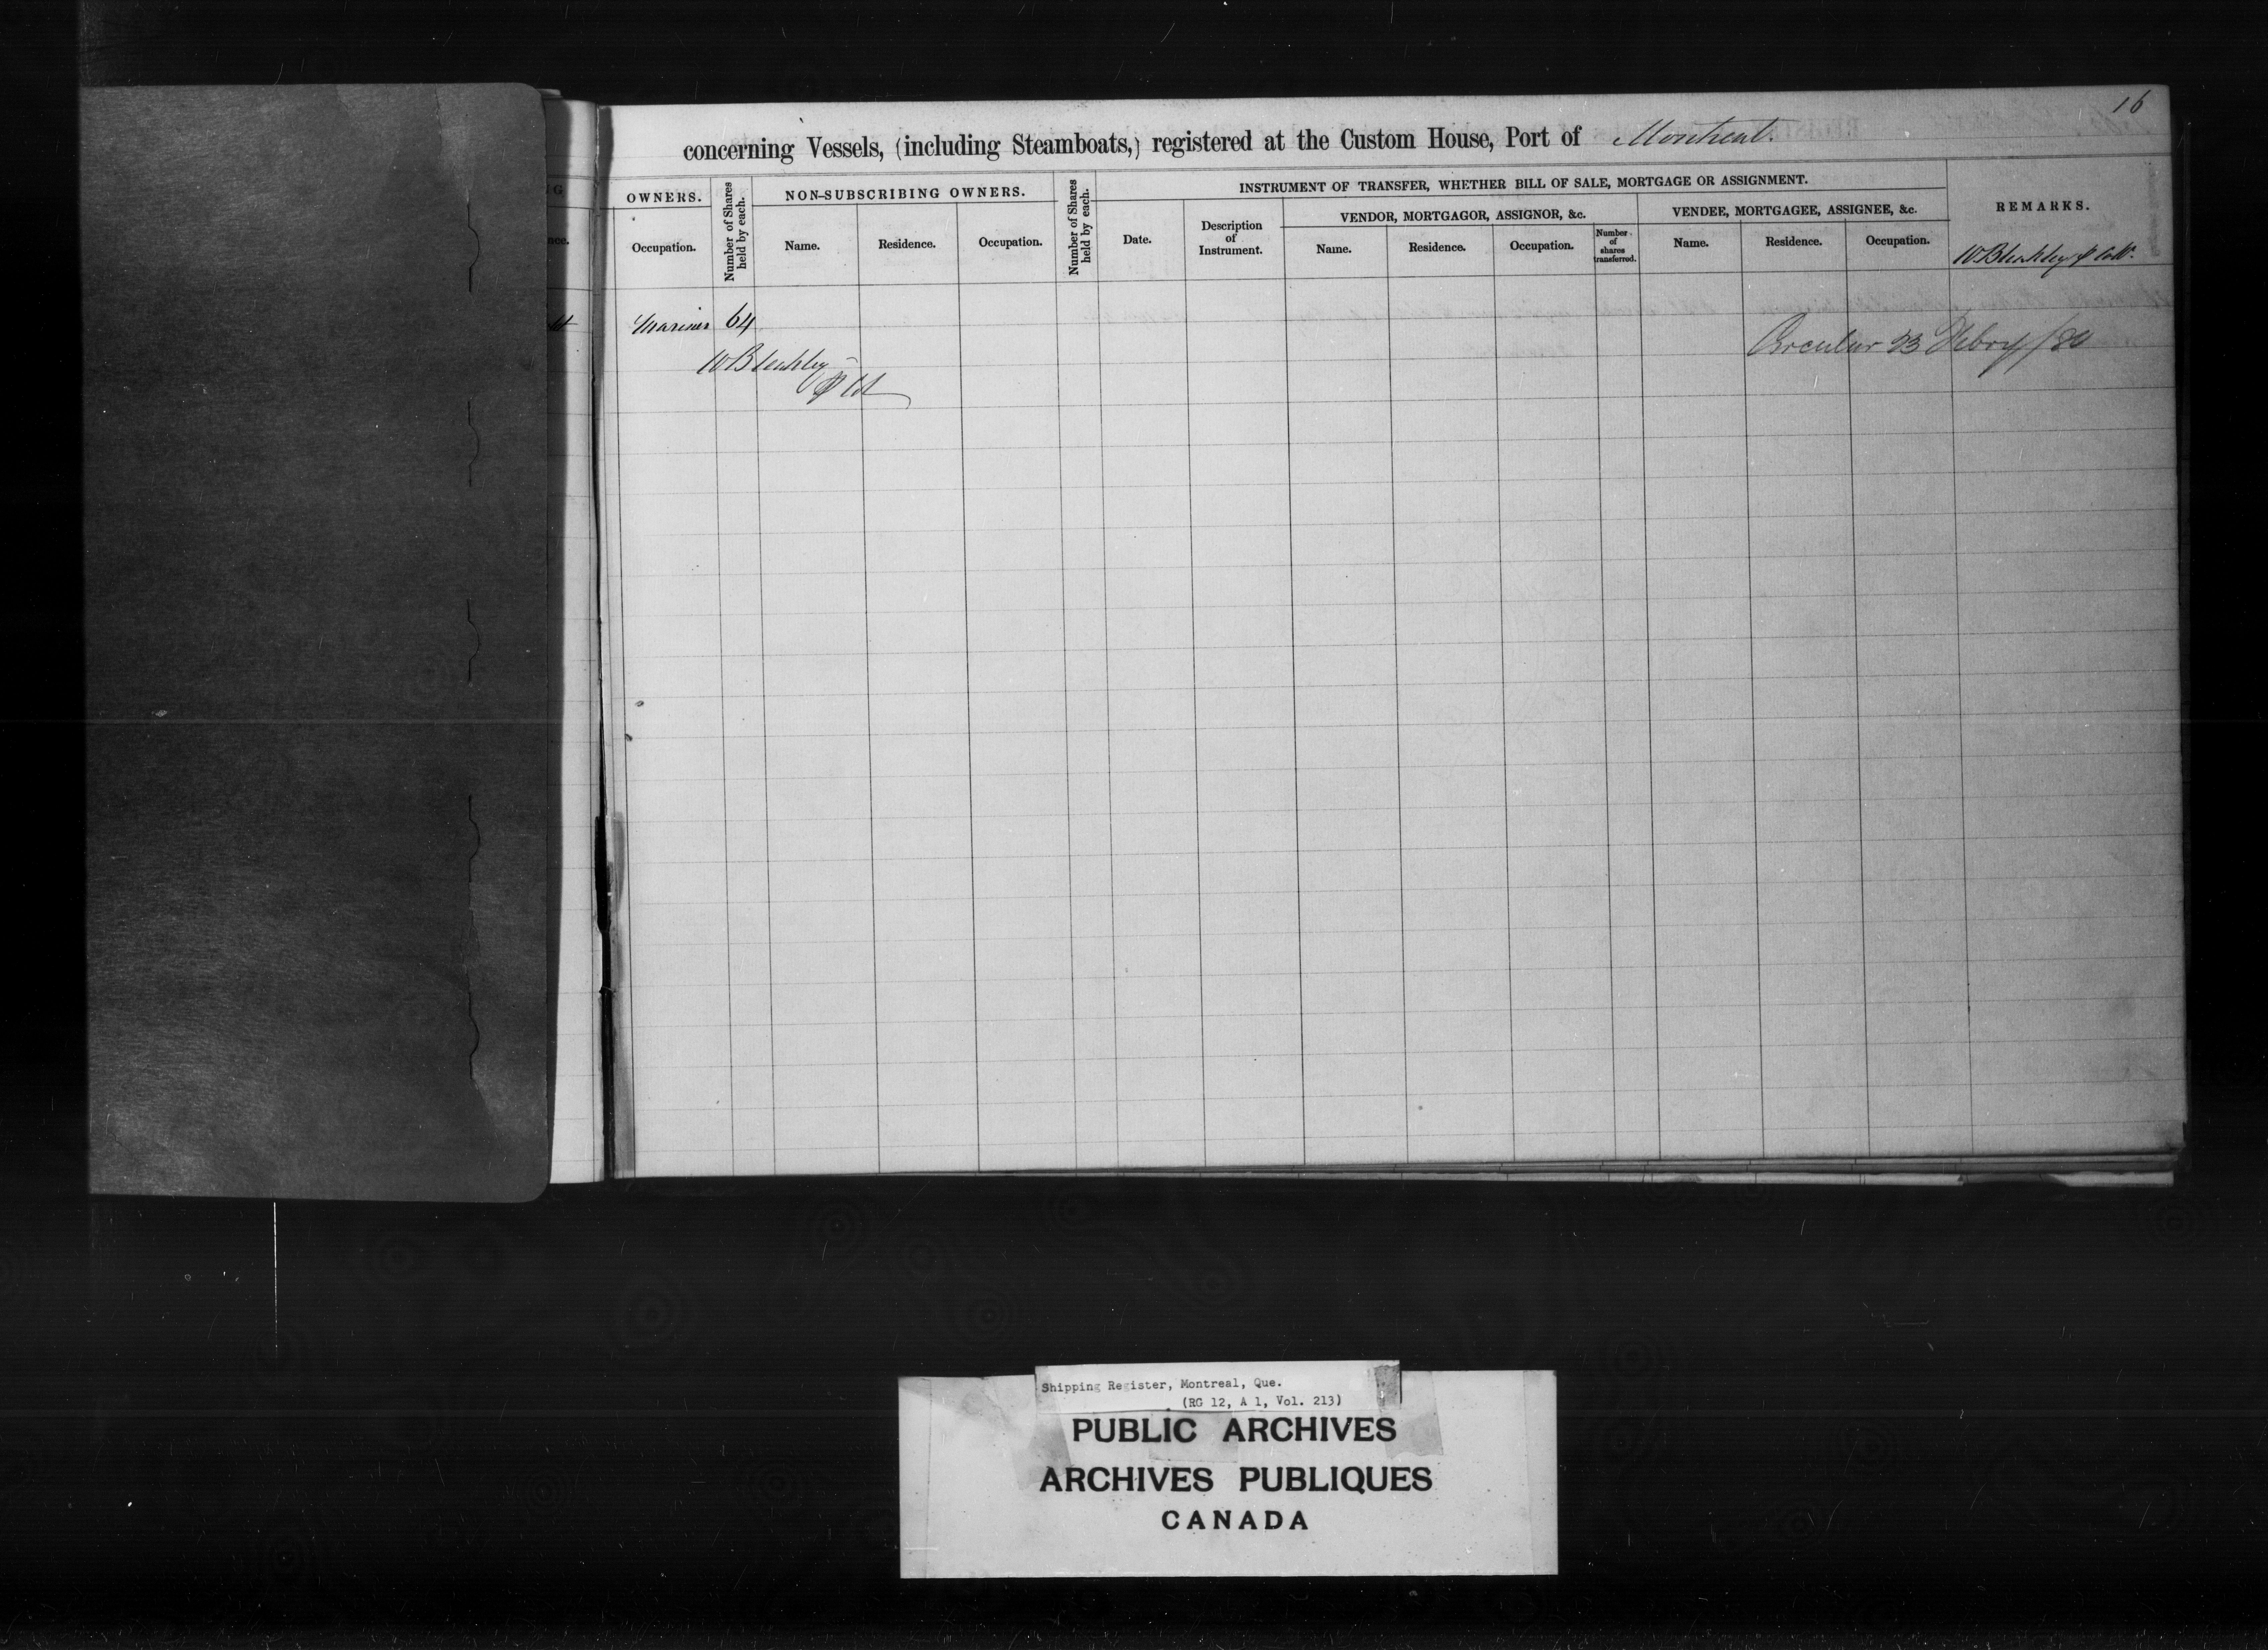 16
concerning Vessels, (including Steamboats,) registered at the Custom House, Port of Montreal.
OWNERS.
Number of Shares held by each.
NON-SUBSCRIBING OWNERS.
Number of Shares held by each.
INSTRUMENT OF TRANSFER, WHETHER BILL OF SALE, MORTGAGE OR ASSIGNMENT.
REMARKS.
VENDOR, MORTGAGOR, ASSIGNOR, &c.
VENDEE, MORTGAGEE, ASSIGNEE, &c.
Occupation.
Name.
Residence.
Occupation.
Date.
Description
of
Instrument.
Name.
Residence.
Occupation.
Number
of
shares
transferred.
Name.
Residence.
Occupation.
W Bleakley
Mariner 64
W Bleakley
Circular 23 Febry/80
Shipping Register, Montreal, Que.
(RG 12, A 1, Vol. 213)
PUBLIC ARCHIVES
ARCHIVES PUBLIQUES
CANADA